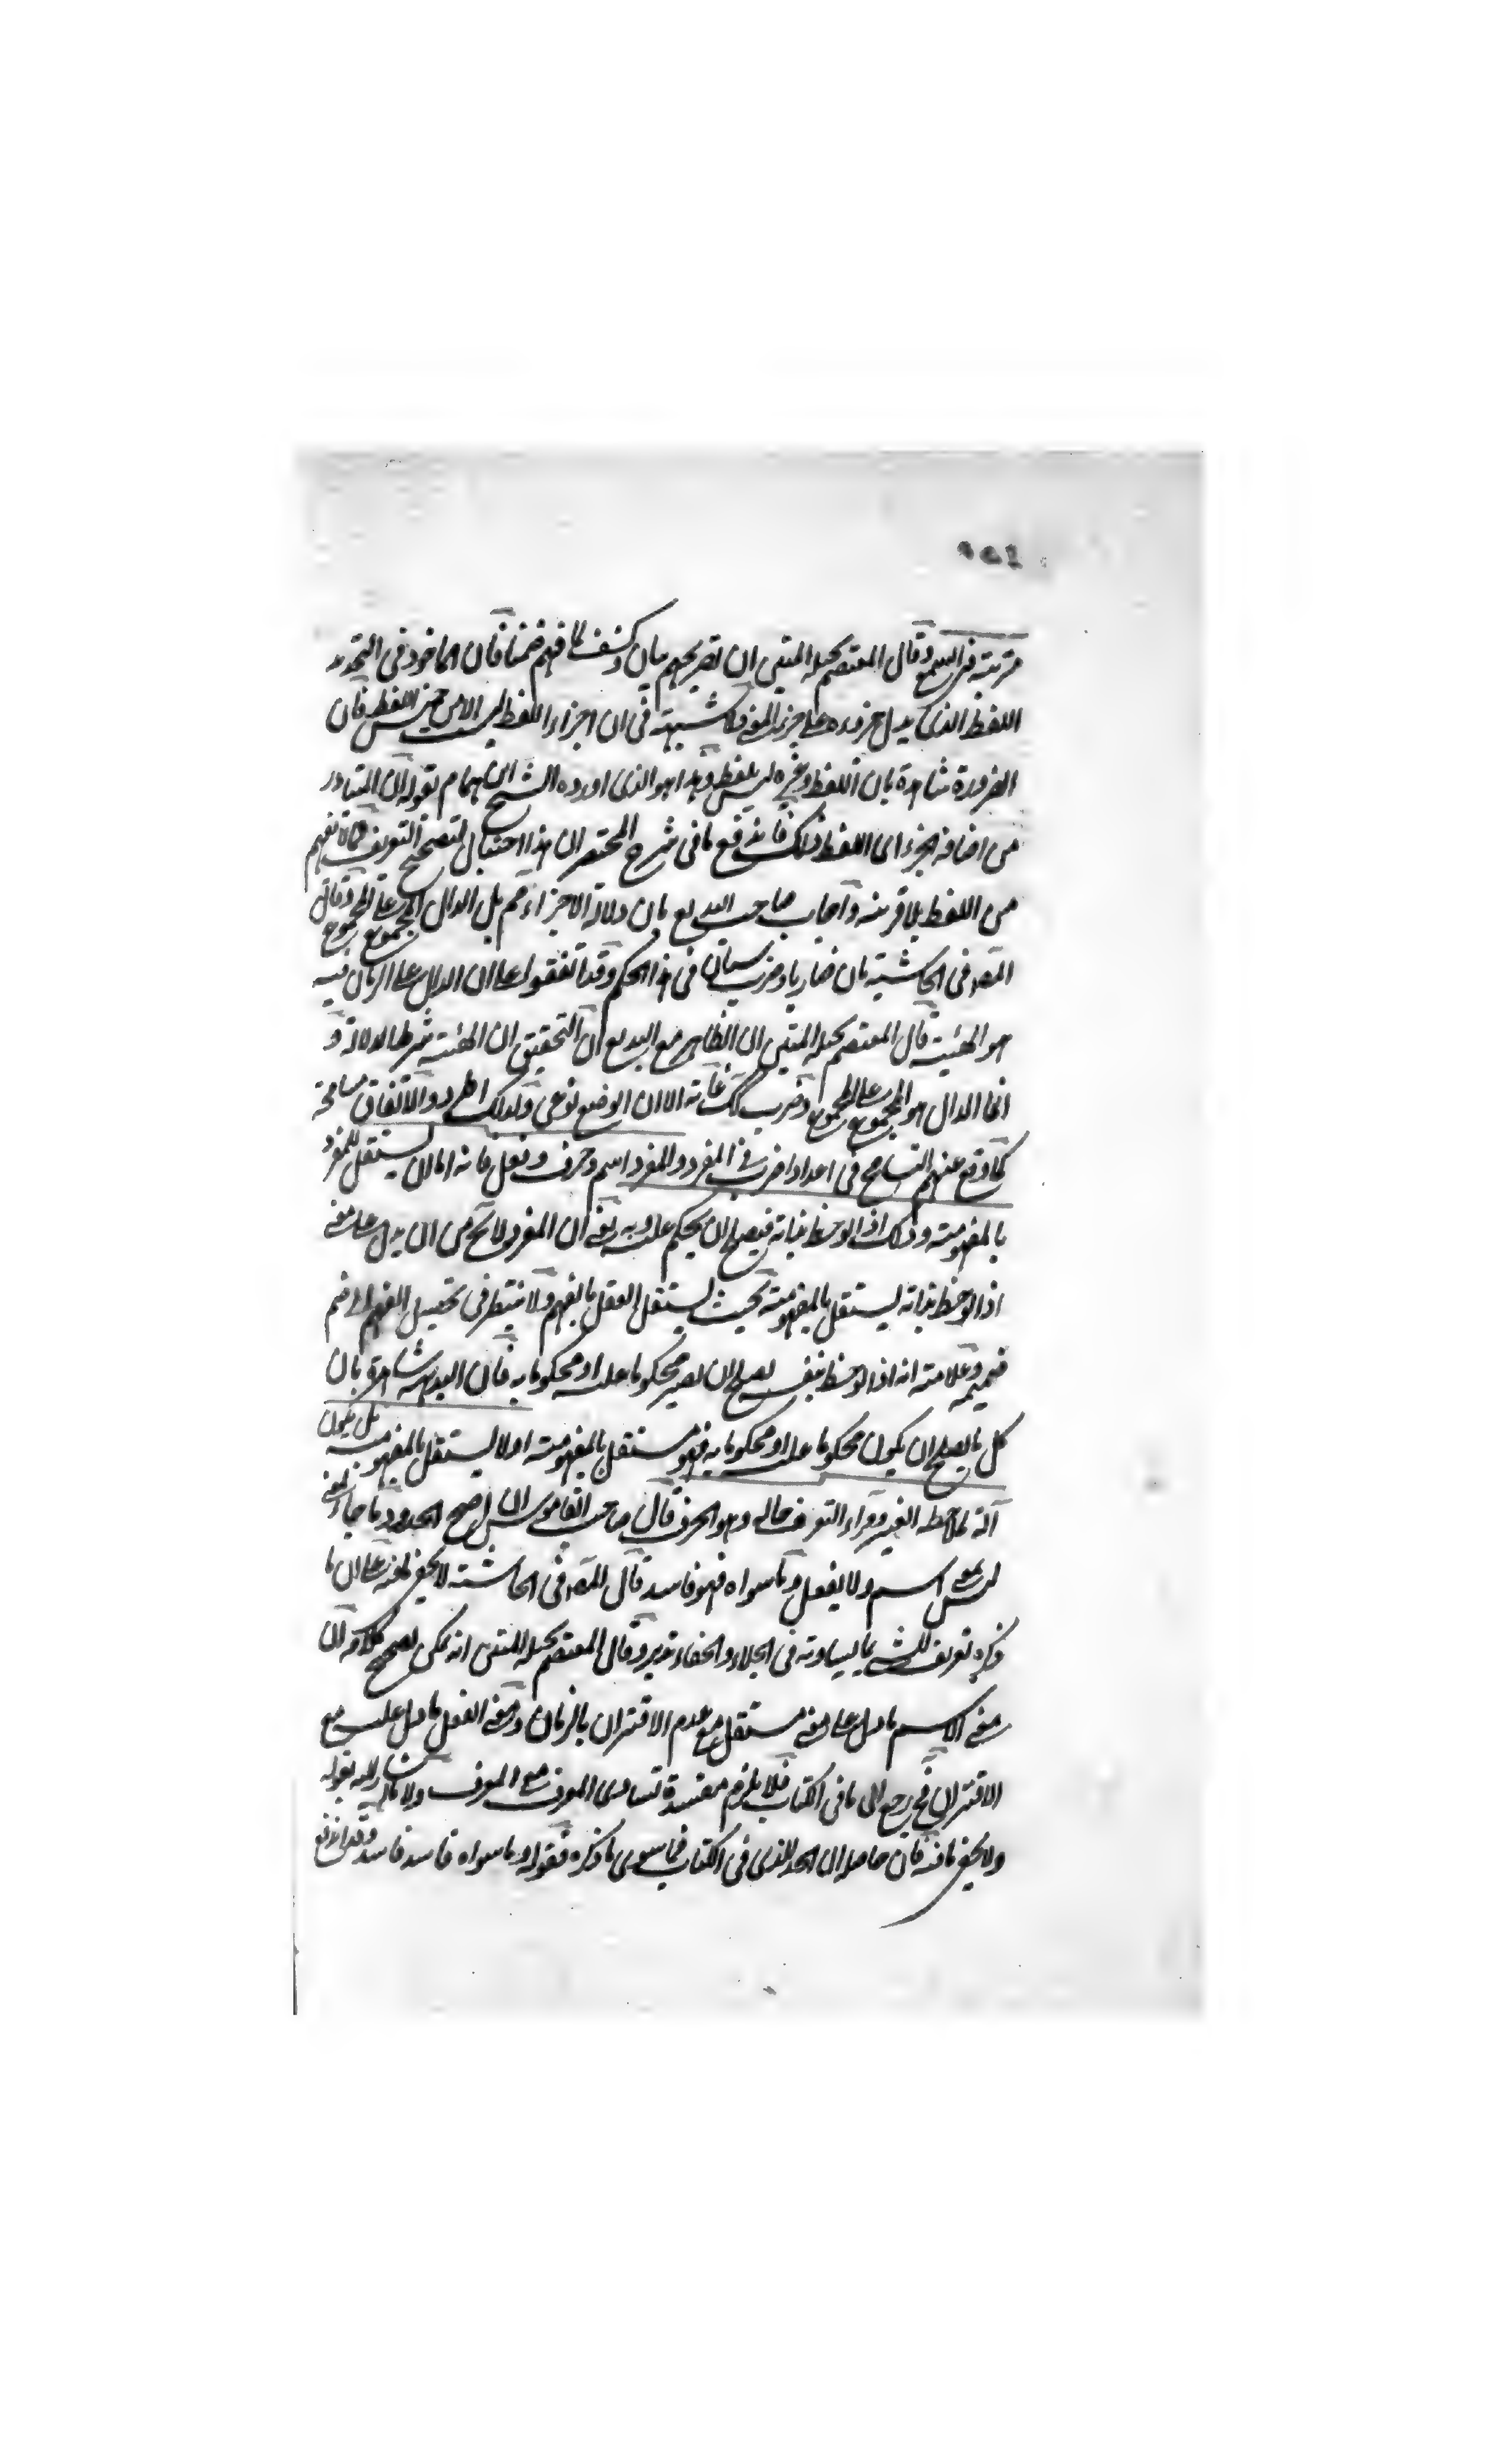 مرتبة في السمع وقال المعتصم بحبله المتين ان تصريحهم بيان وكشف لما فهم ضمنا فان الماخوذ في التحديد
اللفظ الذي يدل جزوه على جزء المعنى ولا شبهة في ان اجزاء اللفظ ليست الا من جنس اللفظ فان
الضرورة شاهدة بان اللفظ وغيره ليس بلفظ وهذا هو الذي اورده الشيخ ابن همام بقوله ان المتبادر
من اضافة الجزء الى اللفظ ذلك فاندفع ما في شرح المختصر ان هذا احتيال لتصحيح التعريف مما لا يفهم
من اللفظ بلا قرينة واجاب صاحب البديع بان دلالة الاجزاء مم بل الدال المجموع على المجموع وقال
المصه في الحاشية بان ضاربا وضرب سيان في هذا الحكم وقد اتفقوا على ان الدال على الزمان فيه
هو الهيئة قال المعتصم بحبله المتين ان الظاهر مع البديع ان التحقيق ان الهيئة شرط الدلالة و
انما الدال هو المجموع على المجموع وضرب كك غايته الا ان الوضع نوعي ولذلك اطرد والاتفاق مسامحة
كما وقع عنهم التسامح في اعداد اضرب في المفرد والمفرد اسم وحرف وفعل فانه اما ان يستقل المفرد
بالمفهومية وذلك اذا لوحظ بذاته فيصلح ان يحكم عليه وبه يعني ان المفرد لا يخ من ان يدل على معنى
اذا لوحظ بذاته يستقل بالمفهومية بحيث يستقل العقل بالفهم ولا ينتظر في تحصيل الفهم الى ضم
ضميمه وعلامته انه اذا لوحظ بنفسه يصلح ان يصير محكوما عليه او محكوما به فان البديهة شاهدة بان
كل ما يصلح ان يكون محكوما عليه او محكوما به فهو مستقل بالمفهومية او لا يستقل بالمفهومية بل يكون
آلة لملاحظة الغير ومراة لتعرف حاله وهو الحرف قال صاحب القاموس ان اصح الحدود ما جاء لمعنى
ليس بمعنى اسم ولا بفعل وما سواه فهو فاسد قال المصه في الحاشية لا يخفى لطفه على ان ما
ذكره تعريف للشيء بما يساويه في الجلاء والخفاء تدبر وقال المعتصم بحبله المتين انه يمكن تصحيح كلامه ان
معنى الاسم ما دل على معنى مستقل مع عدم الاقتران بالزمان ومعنى الفعل ما دل عليه مع
الاقتران فح يرجع الى ما في الكتاب فلا يلزم مفسدة تساوي المعرف مع المعرف ولا اشار اليه بقوله
ولا يخفى ما فيه فان حاصله ان الحد الذي في الكتاب فما سوى ما ذكره فقوله وما سواه فاسد فاسد وقد اندفع